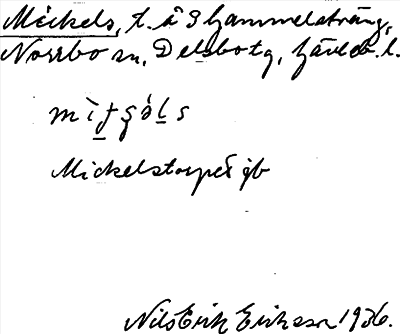 Mickels, t. å 9 Gammelsträng,
Norrbo sn, Delsbo tg, Gävleb. l.
Mickelstorpet gb
Nils Erik Eriksson 1936.